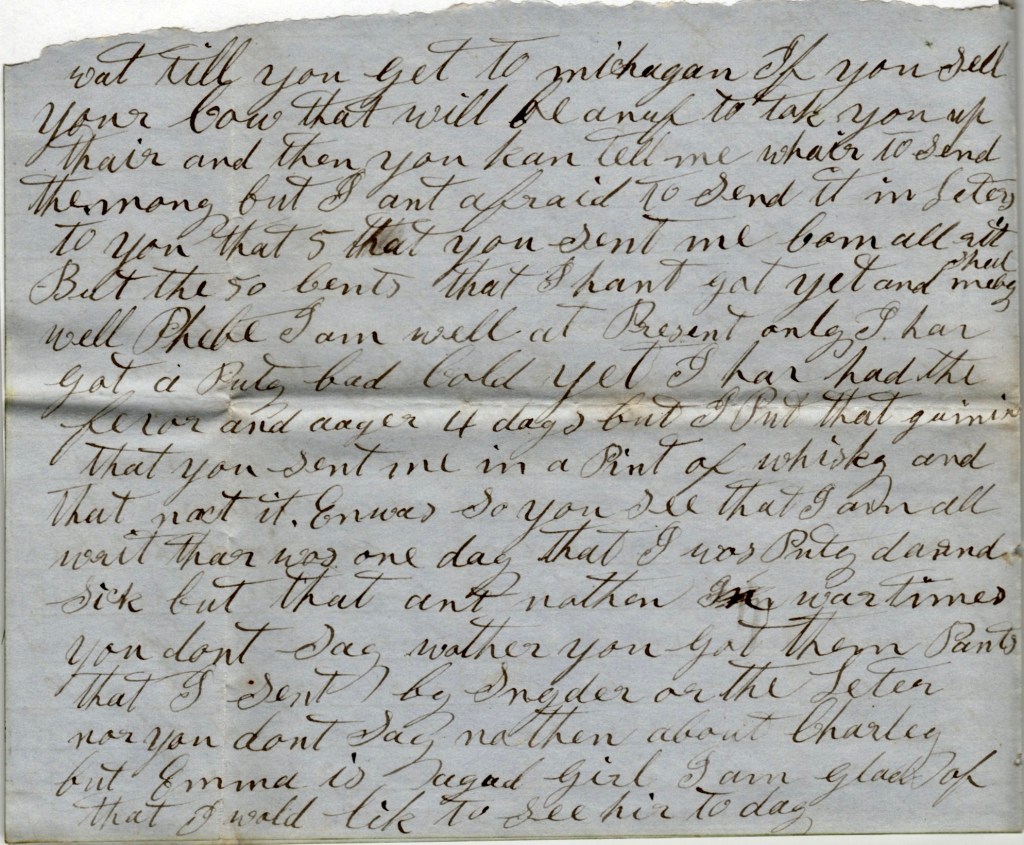 wat till you get to michagan If you sell
your Cow that will be anuf to tak you up
thair and then you kan tell me whair to send
the mony but I ant afraid to send it in Leters
to you that 5 that you sent me Com all rit
But the 50 Cents that I hant got yet and
well Phebe I am well at Present only I hav
got a Puty bad Cold yet I hav had the
fevor and aager 4 days but I Put that
that you sent me in a Pint of whisky and
that it. Enway so you see that I am all
wrait thar was one day that I was Puty damnd
sick but that ant nothen in wartimes
you dont say wother you got them Pants
that I sent by Snyder or the Leter
nor you dont say nothen about Charley
but Emma is agad Girl I am glad of
that I wold lik to see hir to day